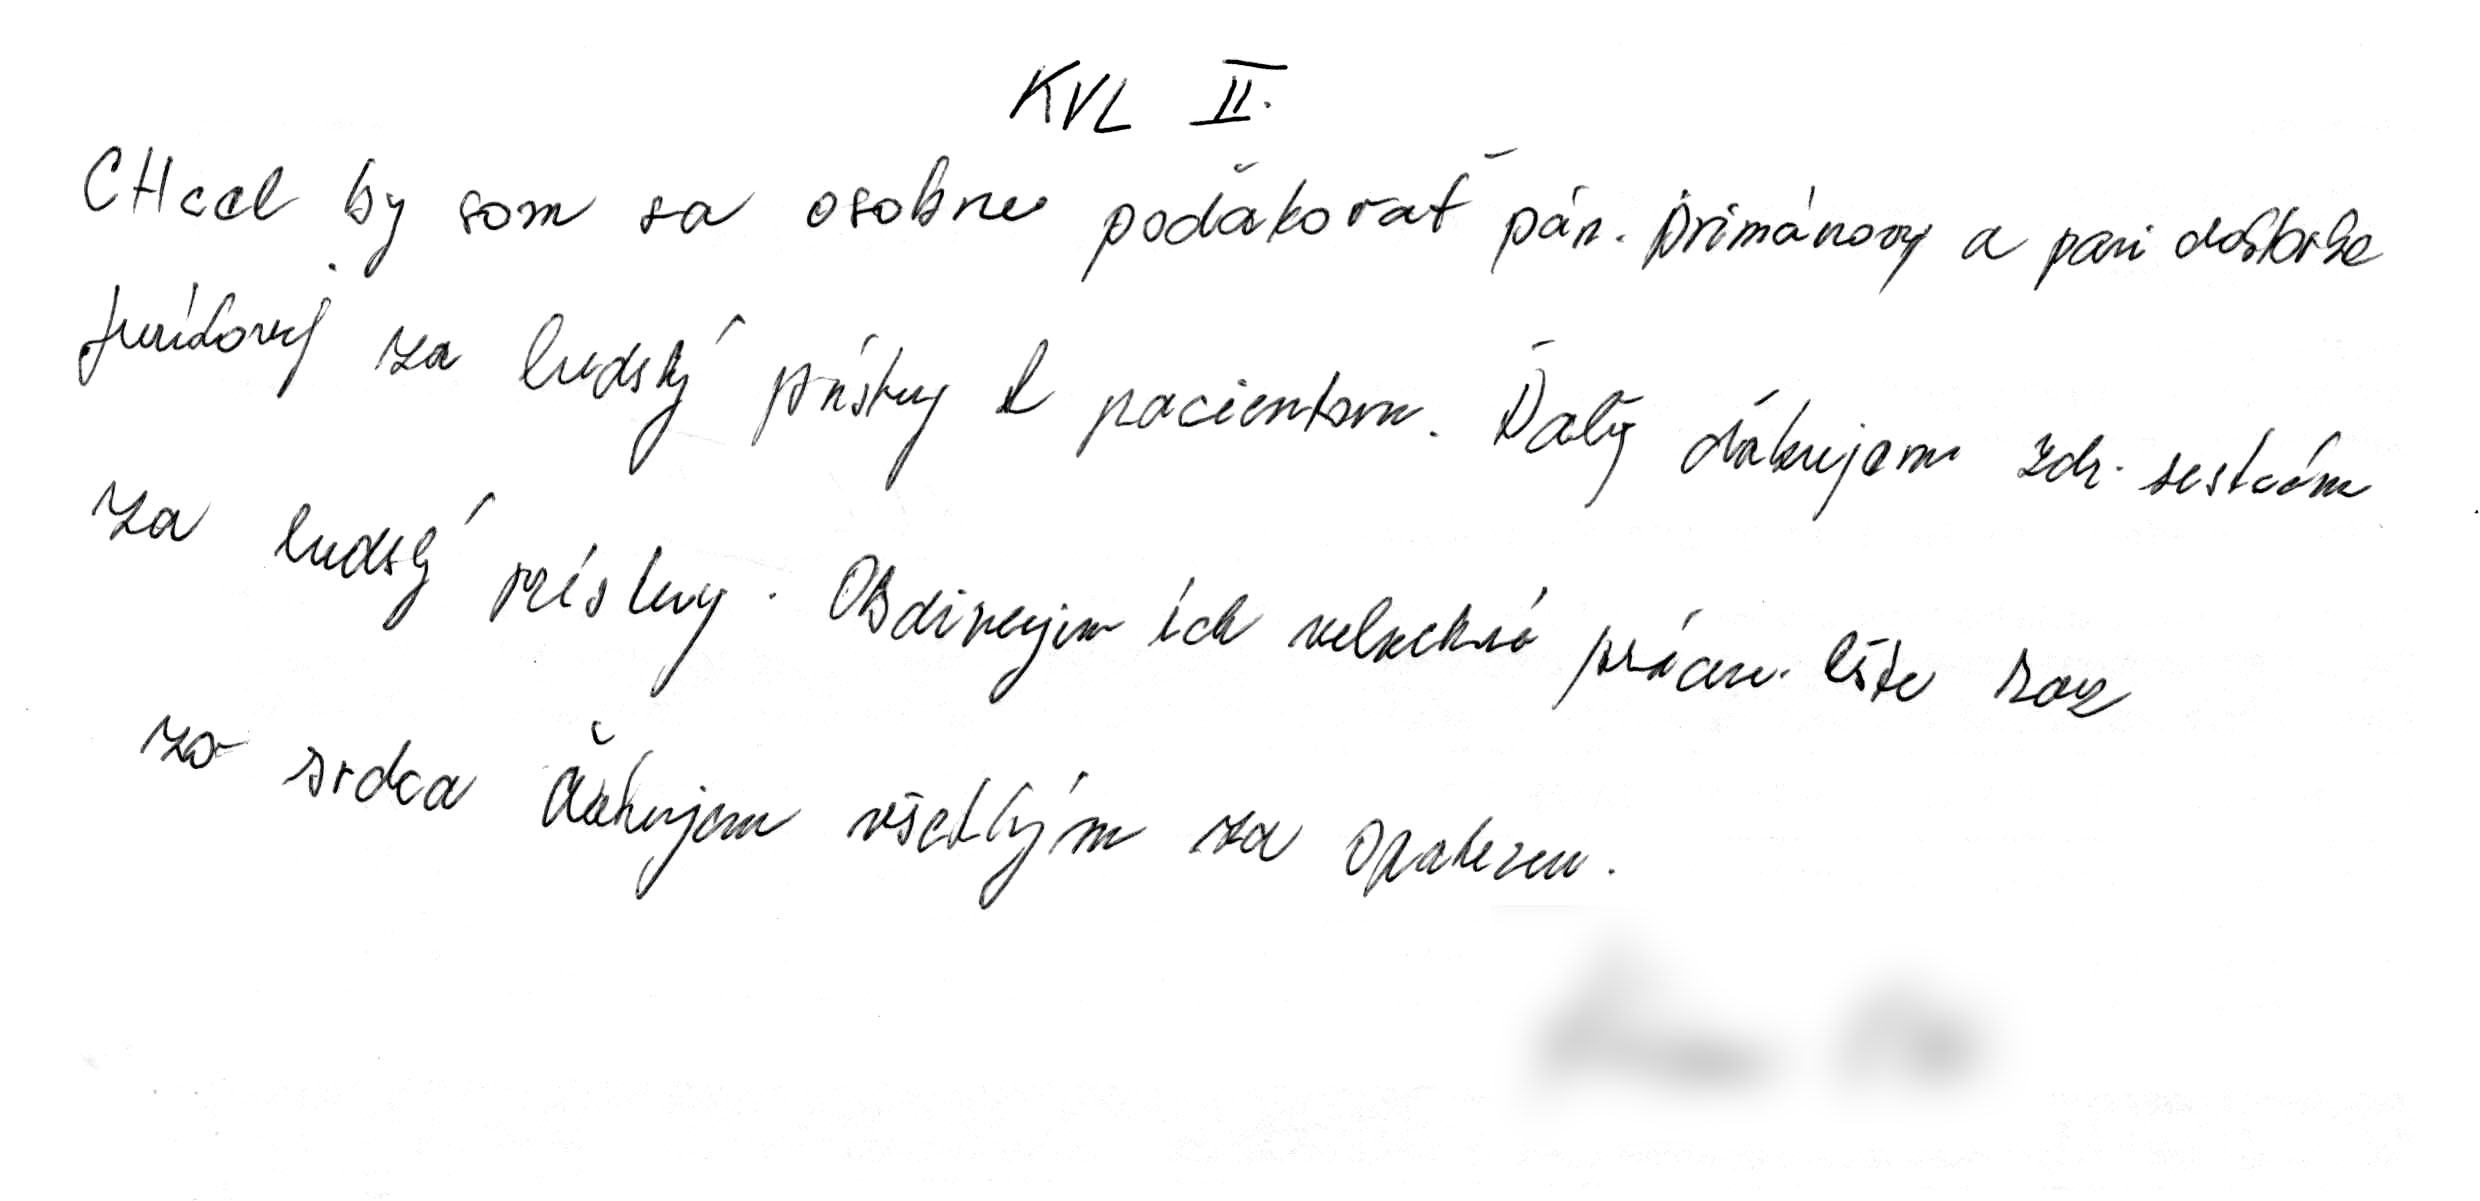 KVL II.
CHcel by som sa osobne podăkovať pán. primánovy a pani doktorke
za ludský prístup k pacientom. Ďalej ďakujem zdr. sestrám
za ludský prístup. Obdivujem ich prácu. Ešte raz
zo srdca ďakujem všetkým za opateru.